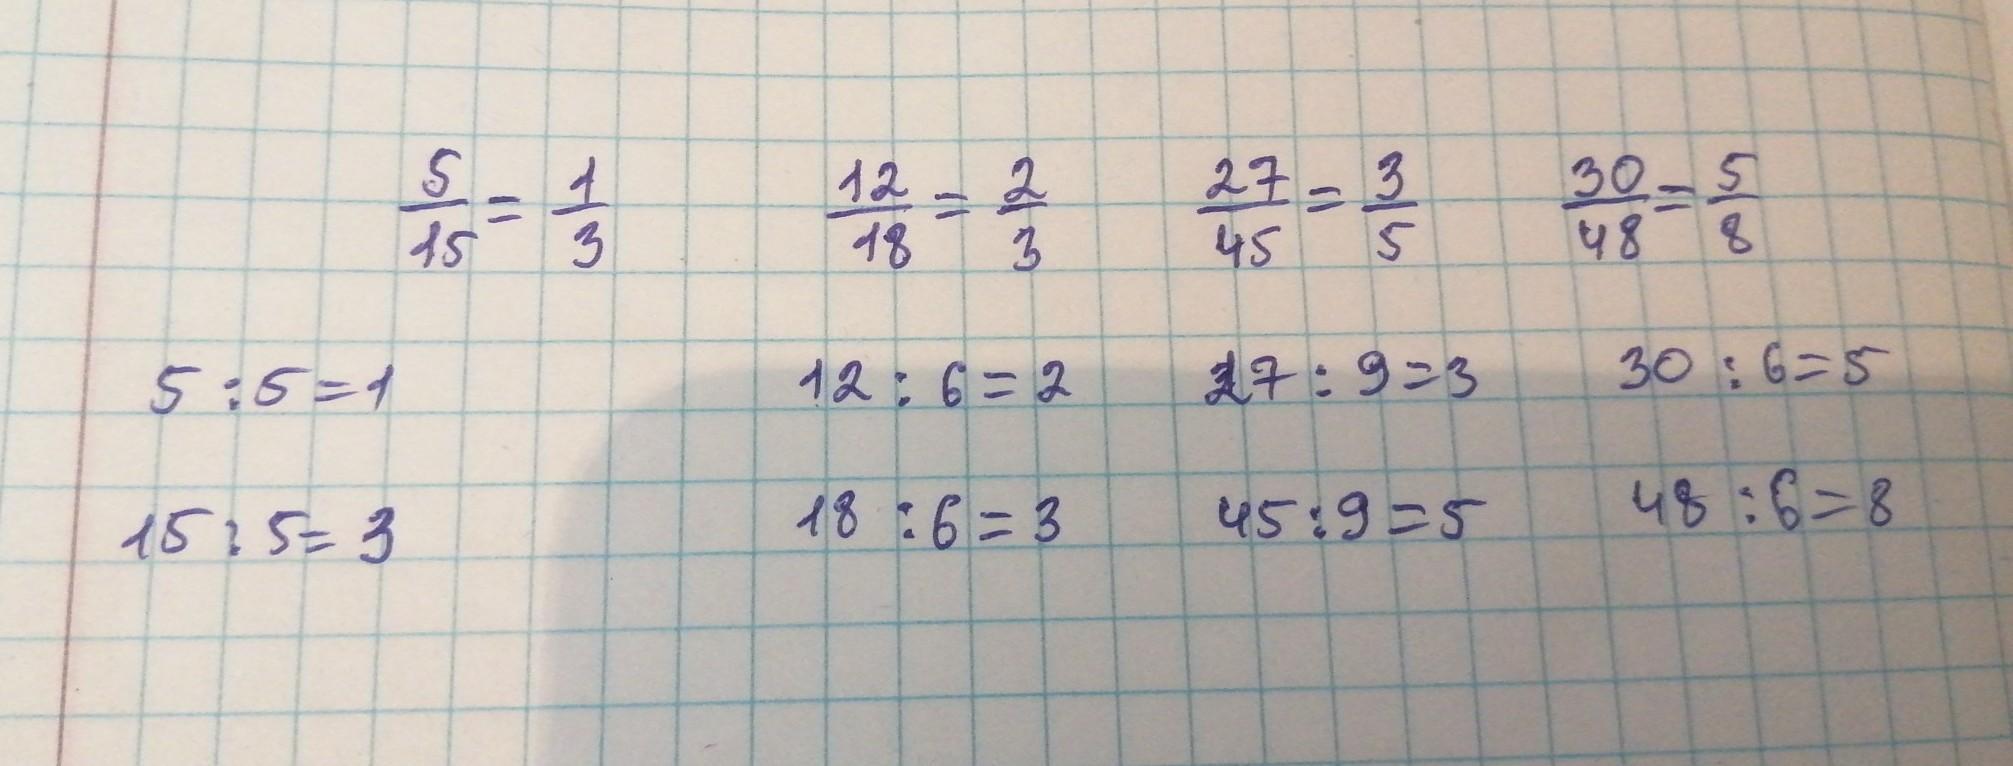 5/15 = 1/3   12/18 = 2/3   27/45 = 3/5   30/48 = 5/8
5 : 5 = 1   12 : 6 = 2   27 : 9 = 3   30 : 6 = 5
15 : 5 = 3   18 : 6 = 3   45 : 9 = 5   48 : 6 = 8